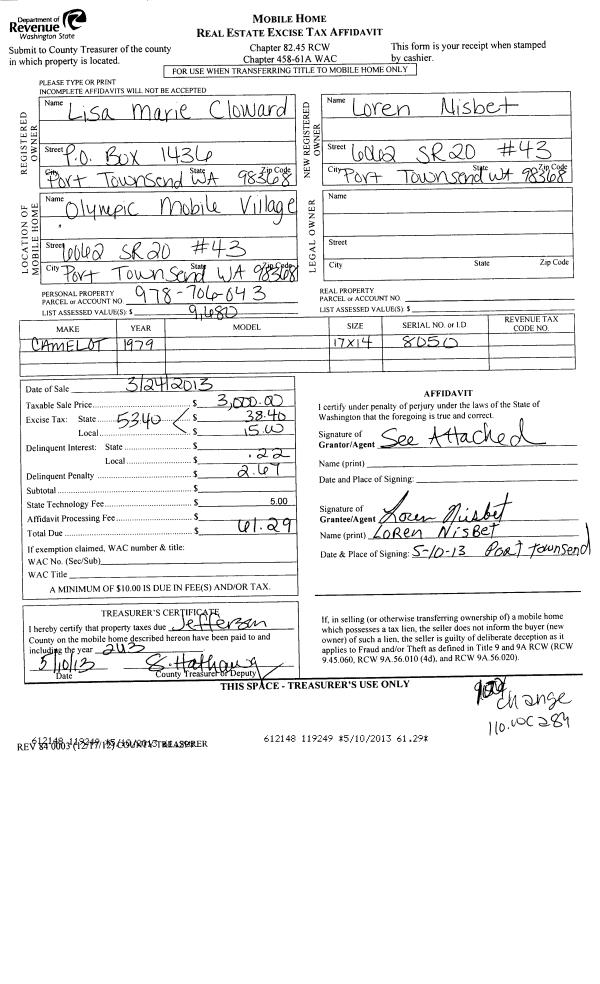 Department of
Revenue
Washington State
MOBILE HOME
REAL ESTATE EXCISE TAX AFFIDAVIT
Submit to County Treasurer of the county
in which property is located.
Chapter 82.45 RCW
Chapter 458-61A WAC
This form is your receipt when stamped
by cashier.
FOR USE WHEN TRANSFERRING TITLE TO MOBILE HOME ONLY
PLEASE TYPE OR PRINT
INCOMPLETE AFFIDAVITS WILL NOT BE ACCEPTED
REGISTERED OWNER
Name Lisa Marie Cloward
Street P.O. Box 1436
City Port Townsend State WA Zip Code 98368
NEW REGISTERED OWNER
Name Loren Nisbet
Street 6062 SR20 #43
City Port Townsend State WA Zip Code 98368
LOCATION OF MOBILE HOME
Name Olympic Mobile Village
Street 6062 SR20 #43
City Port Townsend State WA Zip Code 98368
LEGAL OWNER
Name
Street
City State Zip Code
PERSONAL PROPERTY
PARCEL or ACCOUNT NO. 978-706-043
LIST ASSESSED VALUE(S): $ 9,680
REAL PROPERTY
PARCEL or ACCOUNT NO.
LIST ASSESSED VALUE(S): $
MAKE YEAR MODEL SIZE SERIAL NO. or I.D. REVENUE TAX CODE NO.
CAMELOT 1979 17X14 8050
Date of Sale 3/24/2013
Taxable Sale Price $ 3,000.00
Excise Tax: State 53.40 $ 38.40
Local $ 15.00
Delinquent Interest: State $ .22
Local $
Delinquent Penalty $ 2.67
Subtotal $
State Technology Fee $ 5.00
Affidavit Processing Fee $
Total Due $ 61.29
If exemption claimed, WAC number & title:
WAC No. (Sec/Sub)
WAC Title
A MINIMUM OF $10.00 IS DUE IN FEE(S) AND/OR TAX.
AFFIDAVIT
I certify under penalty of perjury under the laws of the State of
Washington that the foregoing is true and correct.
Signature of
Grantor/Agent See Attached
Name (print)
Date and Place of Signing:
Signature of
Grantee/Agent Loren Nisbet
Name (print) LOREN NISBET
Date & Place of Signing: 5-10-13 PORT Townsend
TREASURER'S CERTIFICATE
I hereby certify that property taxes due Jefferson
County on the mobile home described hereon have been paid to and
including the year 2013
5/10/13
Date County Treasurer or Deputy
If, in selling (or otherwise transferring ownership of) a mobile home
which possesses a tax lien, the seller does not inform the buyer (new
owner) of such a lien, the seller is guilty of deliberate deception as it
applies to Fraud and/or Theft as defined in Title 9 and 9A RCW (RCW
9.45.060, RCW 9A.56.010 (4d), and RCW 9A.56.020).
THIS SPACE - TREASURER'S USE ONLY
change
612148 119249 *5/10/2013 61.29*
REV 84 0003 (12/17/12) COUNTY TREASURER
612148 119249 *5/10/2013 61.29*